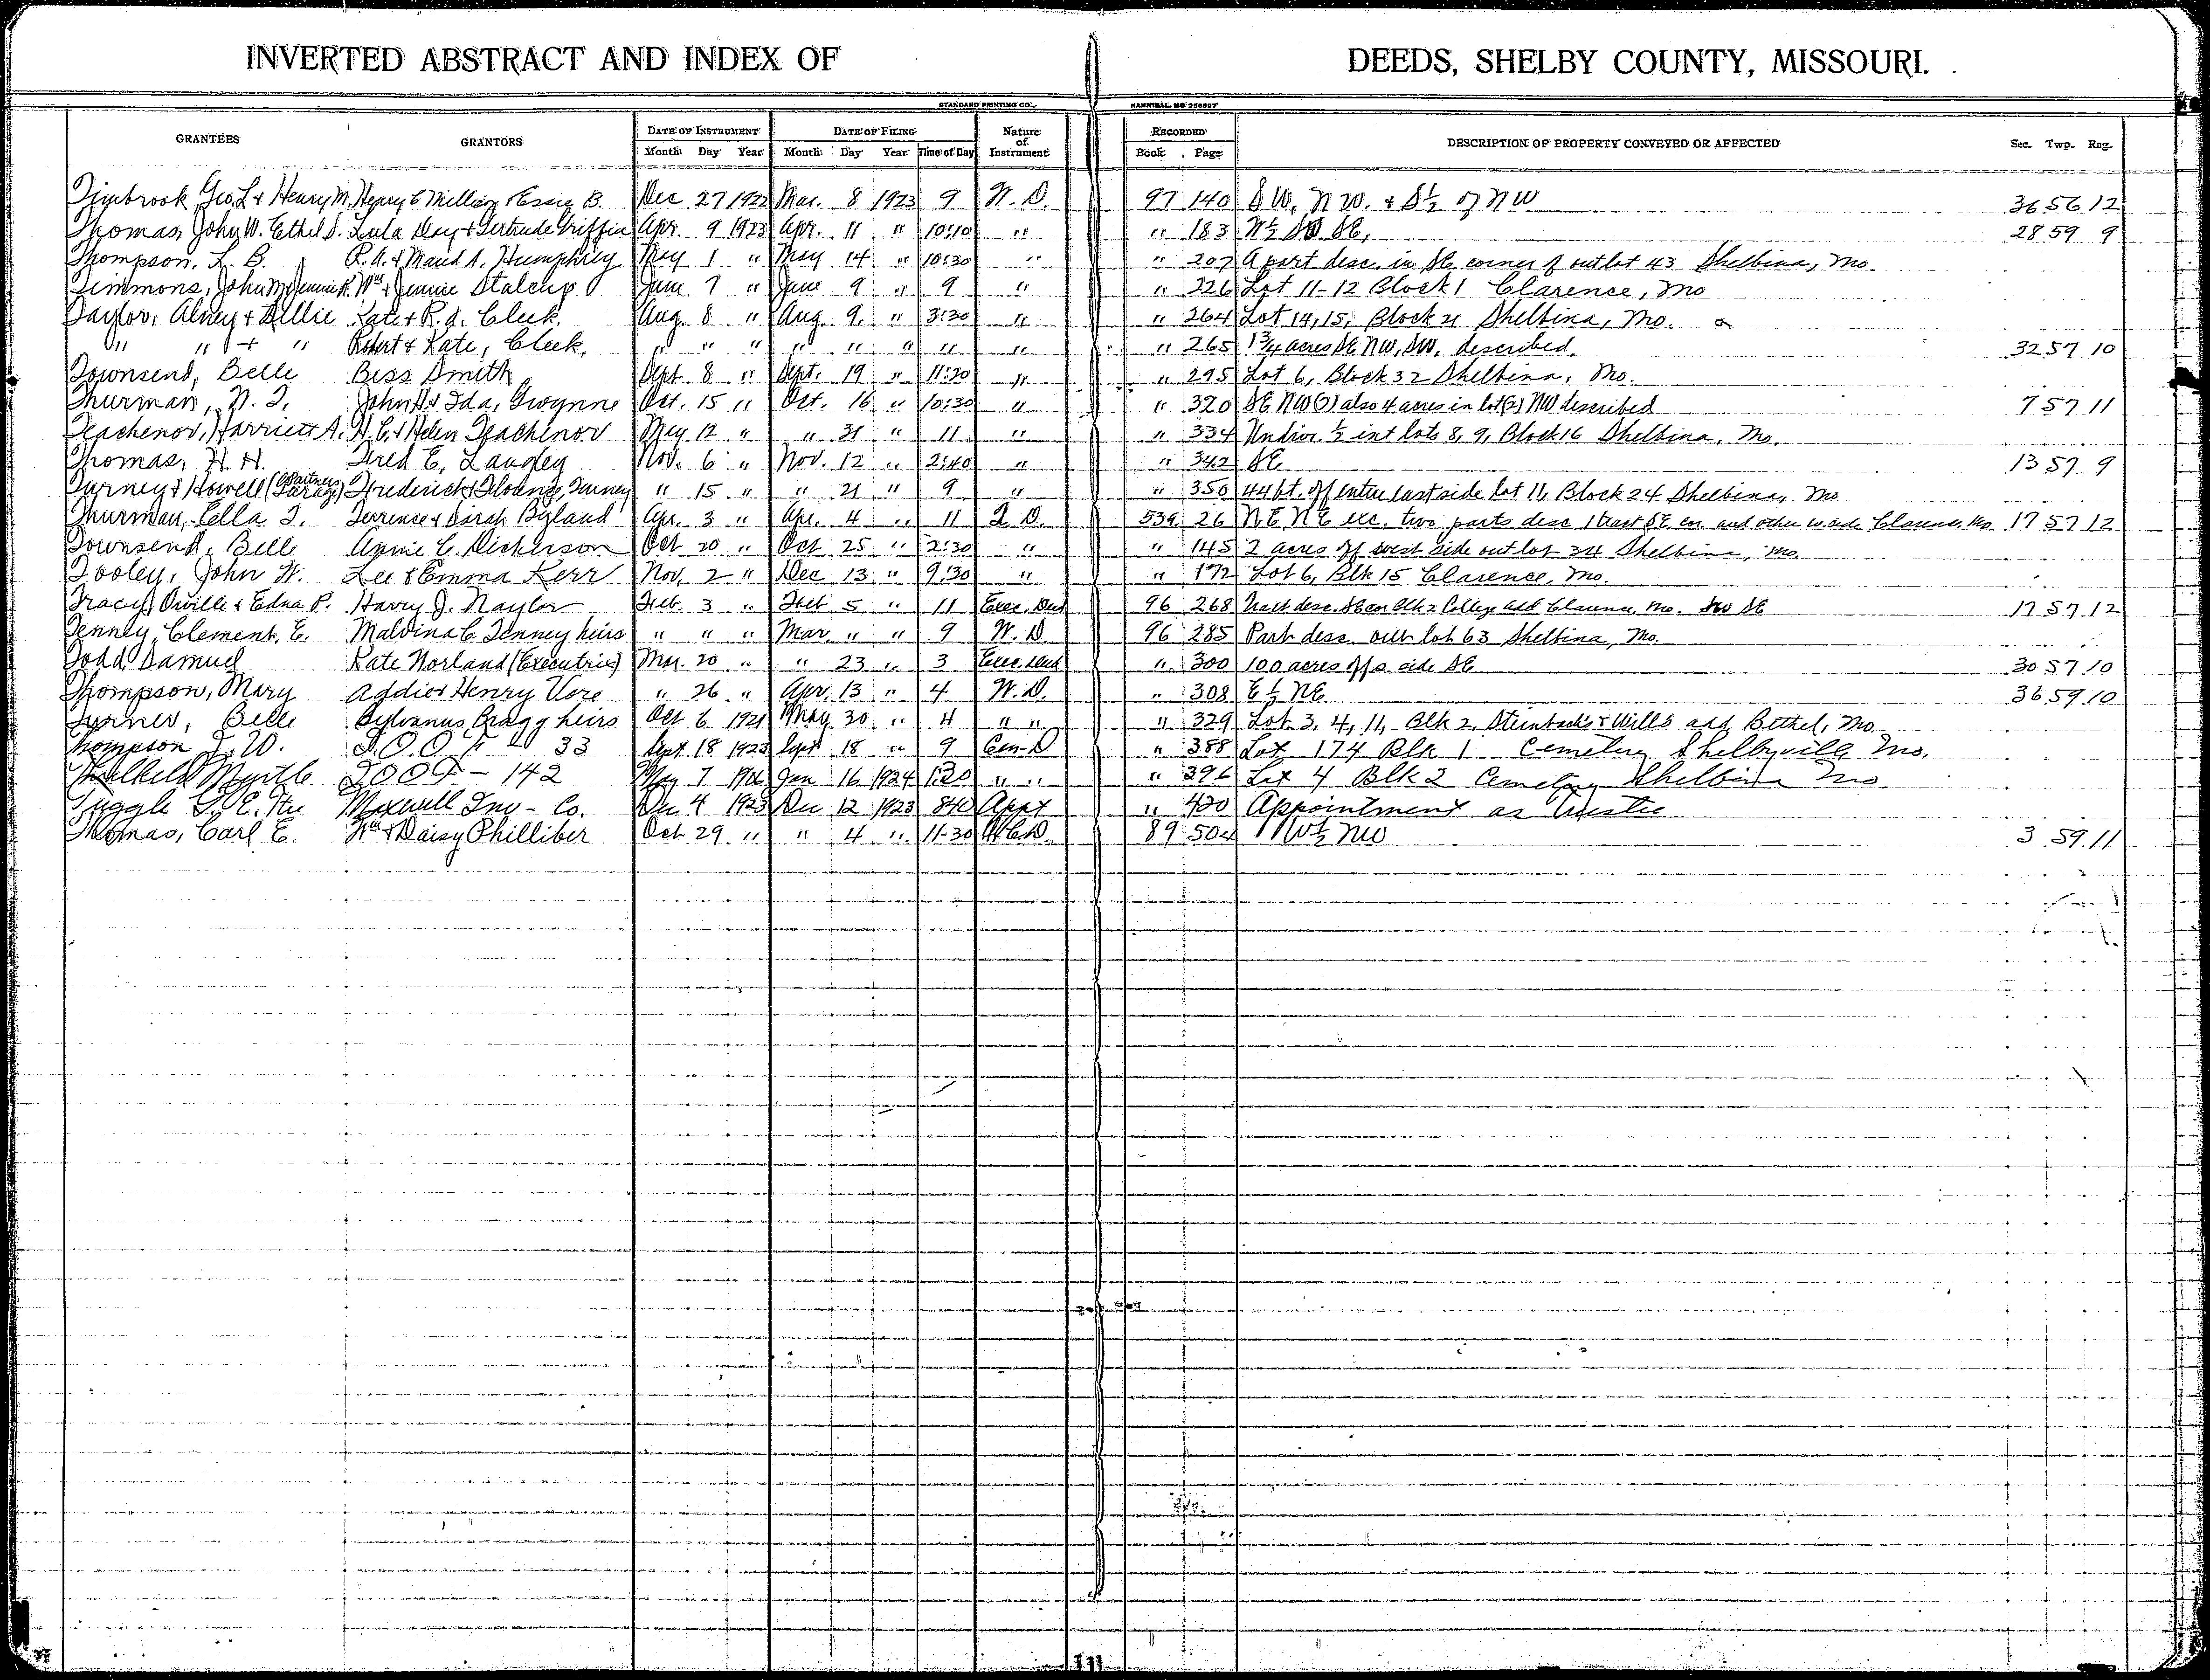 INVERTED ABSTRACT AND INDEX OF DEEDS, SHELBY COUNTY, MISSOURI.
STANDARD PRINTING CO. HANNIBAL, MO
GRANTEES GRANTORS DATE OF INSTRUMENT DATE OF FILING Nature of Instrument RECORDED DESCRIPTION OF PROPERTY CONVEYED OR AFFECTED Sec. Twp. Rng.
Month Day Year Month Day Year Time of Day Book Page
Timbrook, Geo. L. & Henry M. Henry C Million & Essie B. Dec 27 1922 Mar. 8 1923 9 W. D. 97 140 SW, NW. & S½ of NW 36 56 12
Thomas, John W. Ethel S. Lula Day & Gertrude Griffin Apr. 9 1923 Apr. 11 " 10:10 " " 183 N½ SE, 28 59 9
Thompson, L. B. R. A. & Maud A. Humphrey May 1 " May 14 " 10:30 " " 207 A part desc. in SE corner of outlot 43 Shelbina, Mo.
Timmons, John M & Jennie R. Wm & Jennie Stalcup June 7 " June 9 " 9 " " 226 Lot 11-12 Block 1 Clarence, Mo
Taylor, Alney & Dellie Kate & R. A. Cleek. Aug. 8 " Aug. 9. " 3:30 " " 264 Lot 14, 15, Block 21 Shelbina, Mo.
" " + " Robert & Kate, Cleek, " " " " " " " " " 265 1¾ acres SE NW, SW, described, 32 57 10
Townsend, Belle Bess Smith Sept. 8 " Sept. 19 " 11:30 " " 295 Lot 6, Block 32 Shelbina, Mo.
Thurman, N. T. John H & Ida, Gwynne Oct. 15 " Oct. 16 " 10:30 " " 320 SE NW (2) also 4 acres in lot (2) NW described 7 57 11
Teachenor, Harriett A. H. C. & Helen Teachenor May 12 " " 31 " 11 " " 334 Undiv. ½ int lots 8, 9, Block 16 Shelbina, Mo.
Thomas, H. H. Fred E. Langley Nov. 6 " Nov. 12 " 2:40 " " 342 SE 13 57 9
Turney & Howell (Partners Garage) Frederick & Florence, Turney " 15 " " 21 " 9 " " 350 44 ft. off entire east side lot 11, Block 24 Shelbina, Mo
Thurman, Ella T. Terrence & Sarah Byland Apr. 3 " Apr. 4 " 11 T. D. 539 26 NE, NE exc. two parts desc 1 tract SE cor. and other w. side Clarence, Mo 17 57 12
Townsend, Belle Annie C. Dickerson Oct 20 " Oct 25 " 2:30 " " 145 2 acres off west side outlot 34 Shelbina, Mo.
Tooley, John W. Lee & Emma Kerr Nov. 2 " Dec 13 " 9:30 " " 172 Lot 6, Blk 15 Clarence, Mo.
Tracy, Orville & Edna P. Harry J. Naylor Feb. 3 " Feb 5 " 11 Exec. Deed 96 268 Tract desc. SE cor Blk 2 College add Clarence, Mo. SW SE 17 57 12
Tenney, Clement, E. Maldina C. Tenney heirs " " " Mar. " " 9 W. D. 96 285 Part desc. out lot 63 Shelbina, Mo.
Todd, Samuel Kate Norland (Executrix) Mar. 20 " " 23 " 3 Exec. Deed " 300 100 acres off s. side SE 30 57 10
Thompson, Mary Addie & Henry Vore " 26 " Apr. 13 " 4 W. D. " 308 E½ NE 36 59 10
Turner, Belle Sylvanus Bragg heirs Oct 6 1921 May 30 " 4 " " " 329 Lot 3, 4, 11, Blk 2, Steinbach's & Wills add. Bethel, Mo.
Thompson J. W. I.O.O.F - 33 Sept 18 1923 Sept 18 " 9 Cem-D " 388 Lot 174 Blk 1 Cemetery Shelbyville Mo.
Thelkeld Myrtle IOOF - 142 May 7 1906 Jan 16 1924 1:20 " " " 396 Lot 4 Blk 2 Cemetery Shelbina Mo.
Tuggle Maxwell Inv - Co. Dec 4 1923 Dec 12 1923 840 Appt " 420 Appointment as Trustee
Thomas, Carl E. Wm & Daisy Philliber Oct 29 " " 4 " 11-30 89 504 W½ NW 3 59 11